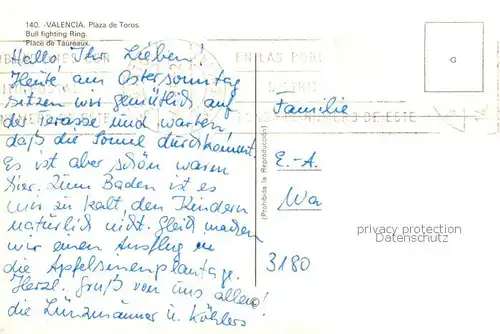 140. -VALENCIA. Plaza de Toros.
Bull fighting Ring.
Place de Taureaux.
Hallo Ihr Lieben!
Heute am Ostersonntag
sitzen wir gemütlich auf
der Terasse und warten,
daß die Sonne durchkommt.
Es ist aber schön warm
hier. Zum Baden ist es
uns zu kalt, den Kindern
natürlich nicht. Gleich machen
wir einen Ausflug in
die Apfelsinenplantage.
Herzl. Gruß von uns allen!
die Lünzmänner u. Köhlers
(Prohibida la Reproducción)
EN LAS POBL
NUMERO DE ESTE
G
Familie
E.-A.
Wa
3180
privacy protection
Datenschutz